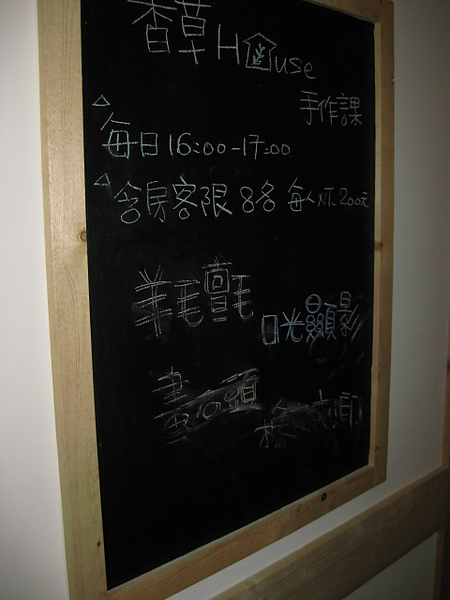 香草House
手作課
△每日16:00-17:00
△含房客限8名 每人 200元
羊毛氈毛
日光顯影
畫石頭